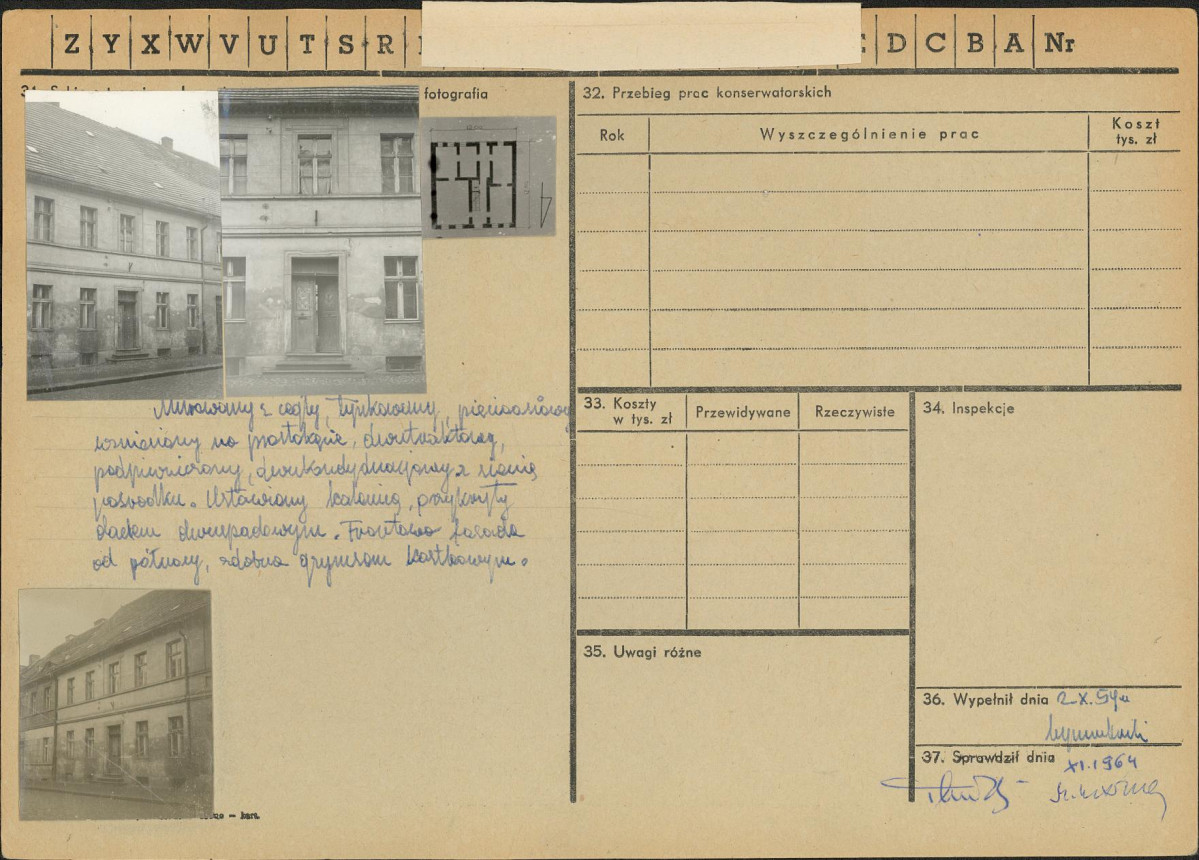 Z Y X W V U T S R D C B A Nr
fotografia
Murowany z cegły, tynkowany, pięcioosiowy
wzniesiony na prostokącie, dwutraktowy,
podpiwniczony, dwukondygnacjowy z sienią
pośrodku. Ustawiony kalenicą, przykryty
dachem dwuspadowym. Frontowa fasada
od północy, zdobna gzymsem kostkowym.
32. Przebieg prac konserwatorskich
Rok Wyszczególnienie prac Koszt tys. zł
33. Koszty w tys. zł Przewidywane Rzeczywiste
34. Inspekcje
35. Uwagi różne
36. Wypełnił dnia 2.X.59r
37. Sprawdził dnia XI.1964